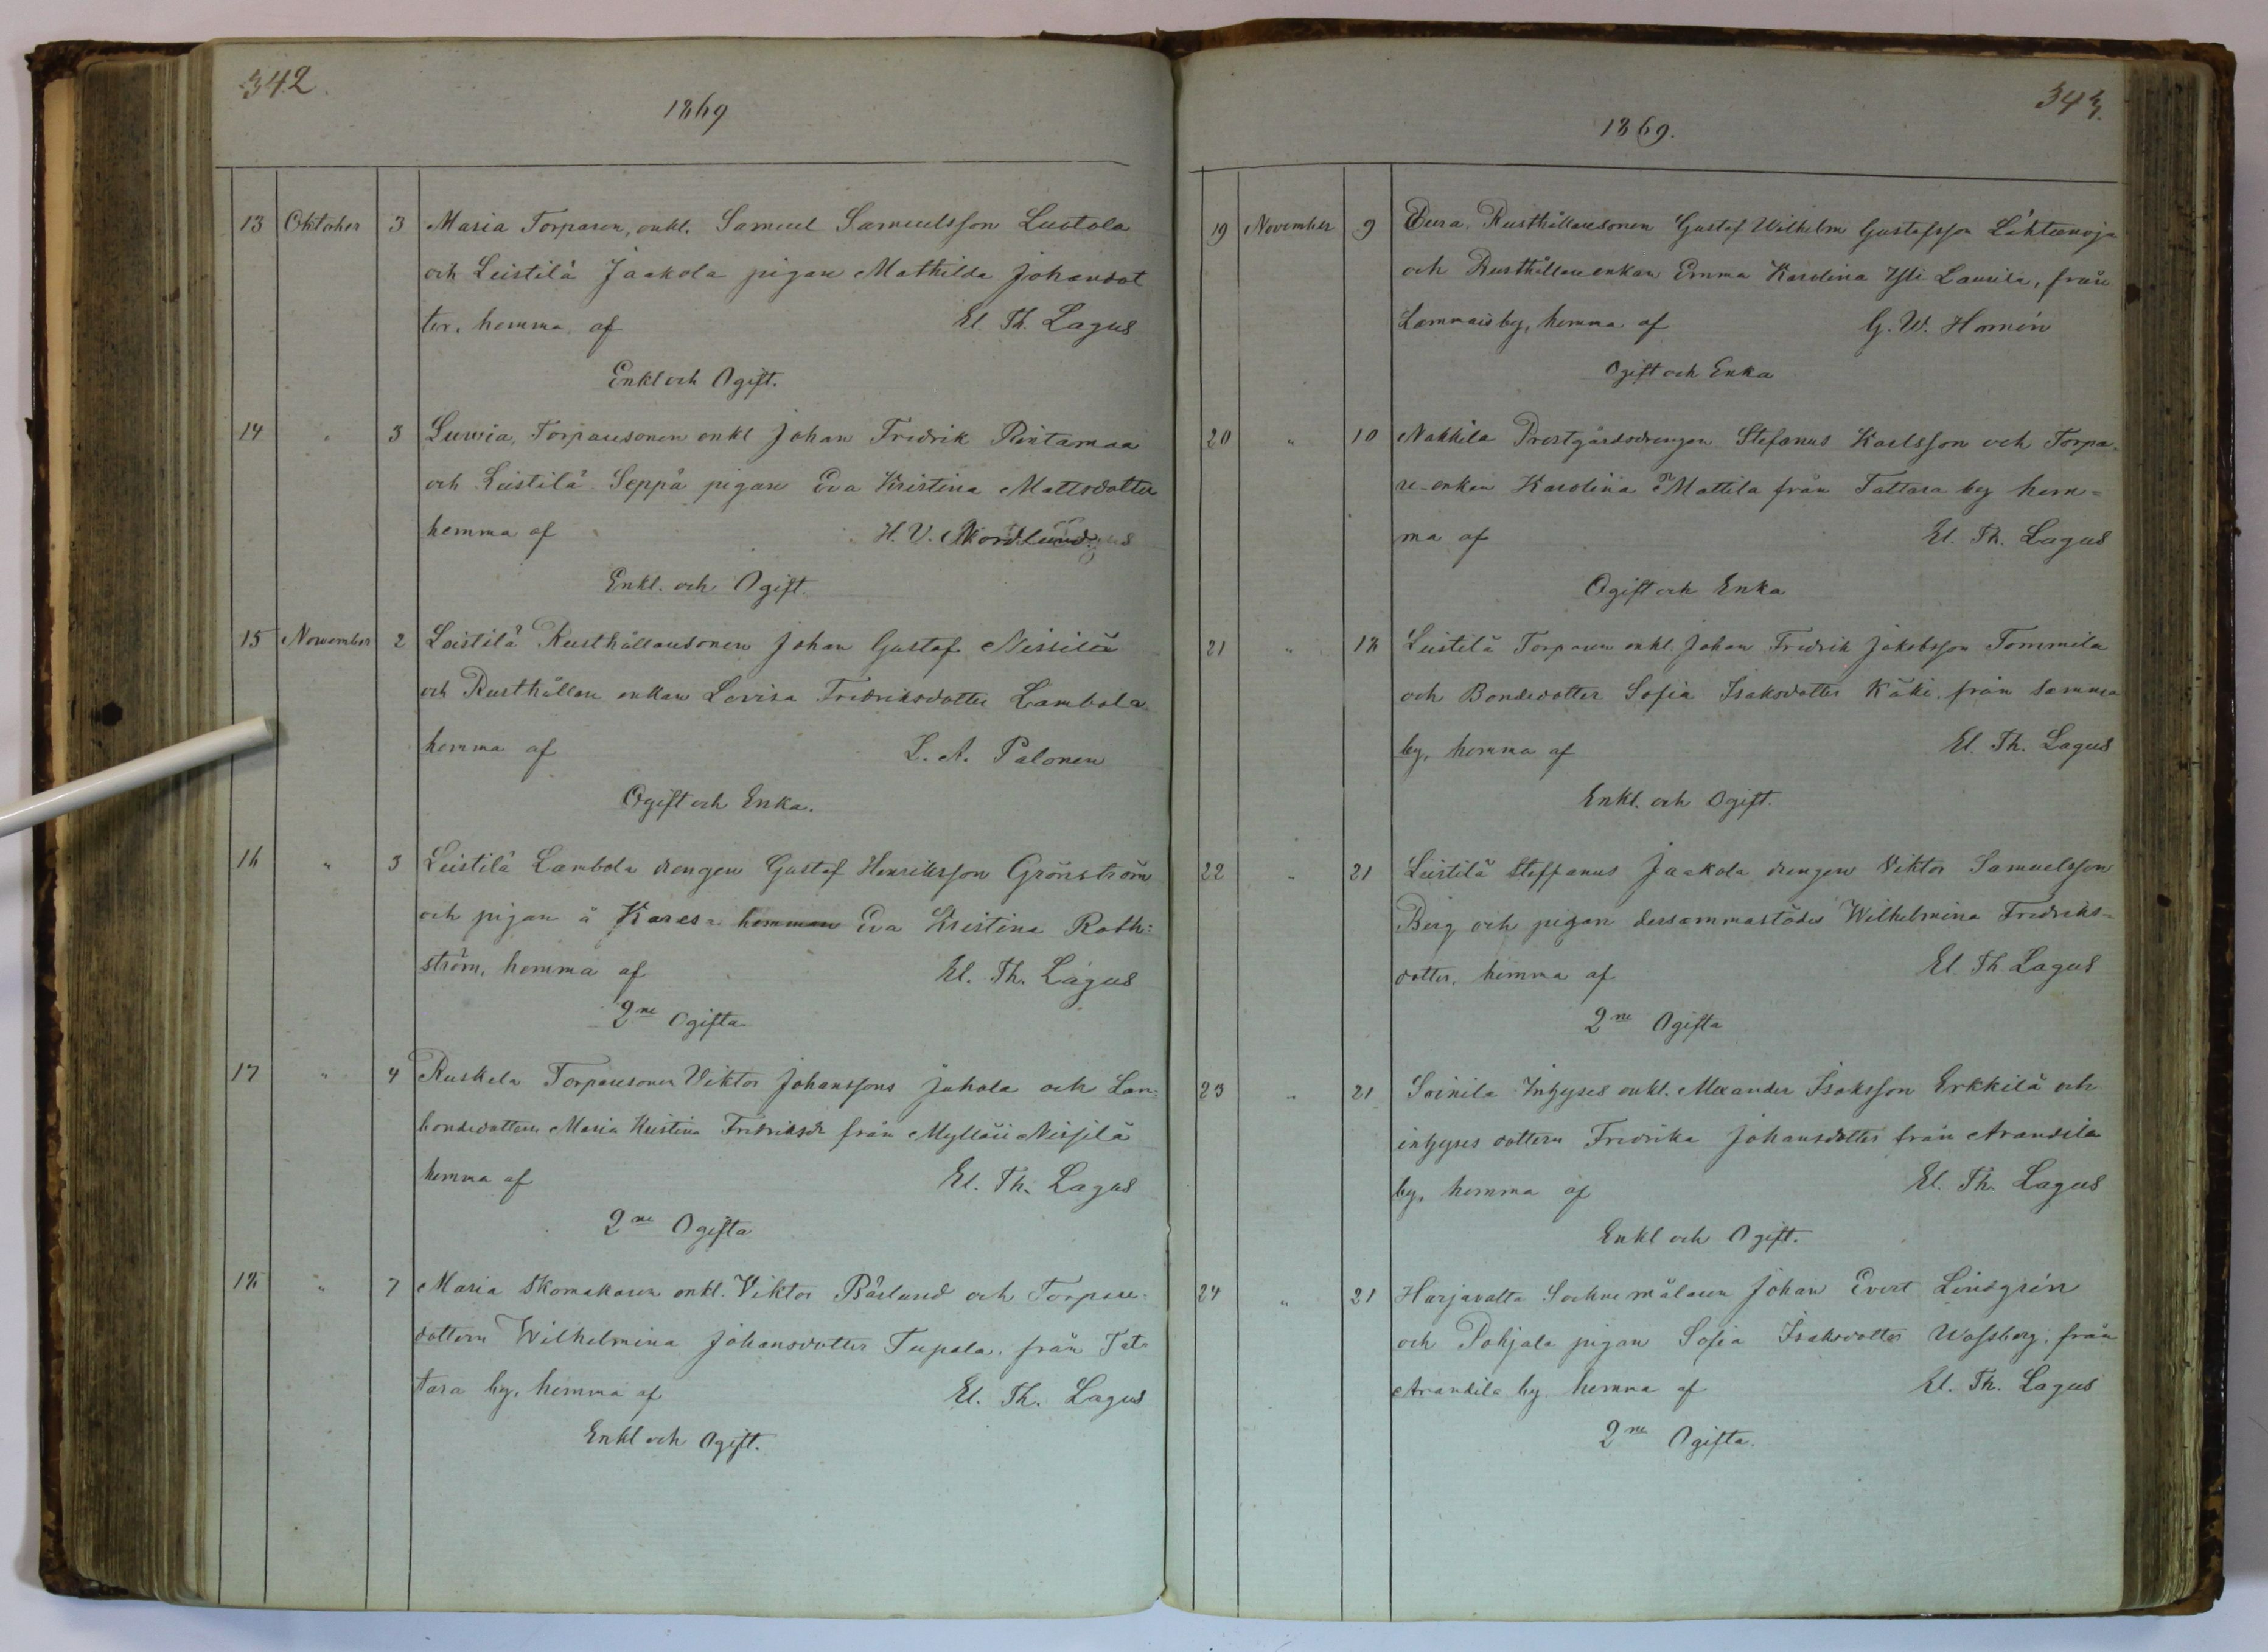 342.
1869
13 Oktober 3 Masia Torparen, enkl. Samuel Samuelsson Luotola
och Leistilä Jaakola pigan Mathilda Johansdot
ter, hemma af El. Th. Lagus
Enkl och Ogift.
14 " 3 Luvia, Torparesonen enkl Johan Fredrik Pintamaa
och Leistilä Seppä pigan Eva Kristina Mattsdotter
hemma af H. V. Nordlund
Enkl. och Ogift.
15 November 2 Leistilä Rusthållaresonen Johan Gustaf Nissilä
och Rusthållare enkan Lovisa Fredriksdotter Lambola
hemma af L. A. Palonen
Ogift och Enka.
16 " 3 Leistilä Lambola drengen Gustaf Henriksson Grönström
och pigan å Karesa hemman Eva Kristina Roth=
ström, hemma af El. Th. Lagus
2ne Ogifta
17 " 4 Ruskela Torparesonen Viktor Johanssons Juhola och Lan=
bondedottern Maria Kristina Fredriksdr från Nissilä
hemma af El. Th. Lagus
2ne Ogifta
18 " 7 Masia Skomakaren enkl. Viktor Båslund och Torpare=
dottern Wilhelmina Johansdotter Tupala, från Tat=
tara by, hemma af El. Th. Lagus
Enkl och Ogift.
343.
1869.
19 November 9 Eura, Rusthållaresonen Gustaf Wilhelm Gustafsson Lähteenoja
och Rusthållareenkan Emma Karolina Yli Laurila, från
Lammais by, hemma af G. W. Homén
Ogift och Enka
20 " 10 Nakkila Prestgårdsdrengen Stefanus Karlsson och Torpa=
re-enkan Karolina Mattila från Tattara by hem=
ma af El. Th. Lagus
Ogift och Enka
21 " 18 Leistilä Torparen enkl. Johan Fredrik Jakobsson Tommila
och Bondedotter Sofia Isaksdotter Käki, från samma
by, hemma af El. Th. Lagus
Enkl. och Ogift.
22 " 21 Leistilä Steffanus Jaakola drengen Viktor Samuelsson
Berg och pigan dersammastädes Wilhelmina Fredriks=
dotter, hemma af El. Th Lagus
2ne Ogifta
23 " 21 Soinila Inhyses enkl. Alexander Isaksson Erkkilä och
inhyses dottern Fredrika Johansdotter från Arandila
by, hemma af El. Th. Lagus
Enkl och Ogift.
24 " 21 Harjavalta Sockne målaren Johan Evert Lindgrén
och Pohjala pigan Sofia Isaksdotter Wassberg, från
Arandila by hemma af El. Th. Lagus
2ne Ogifta.